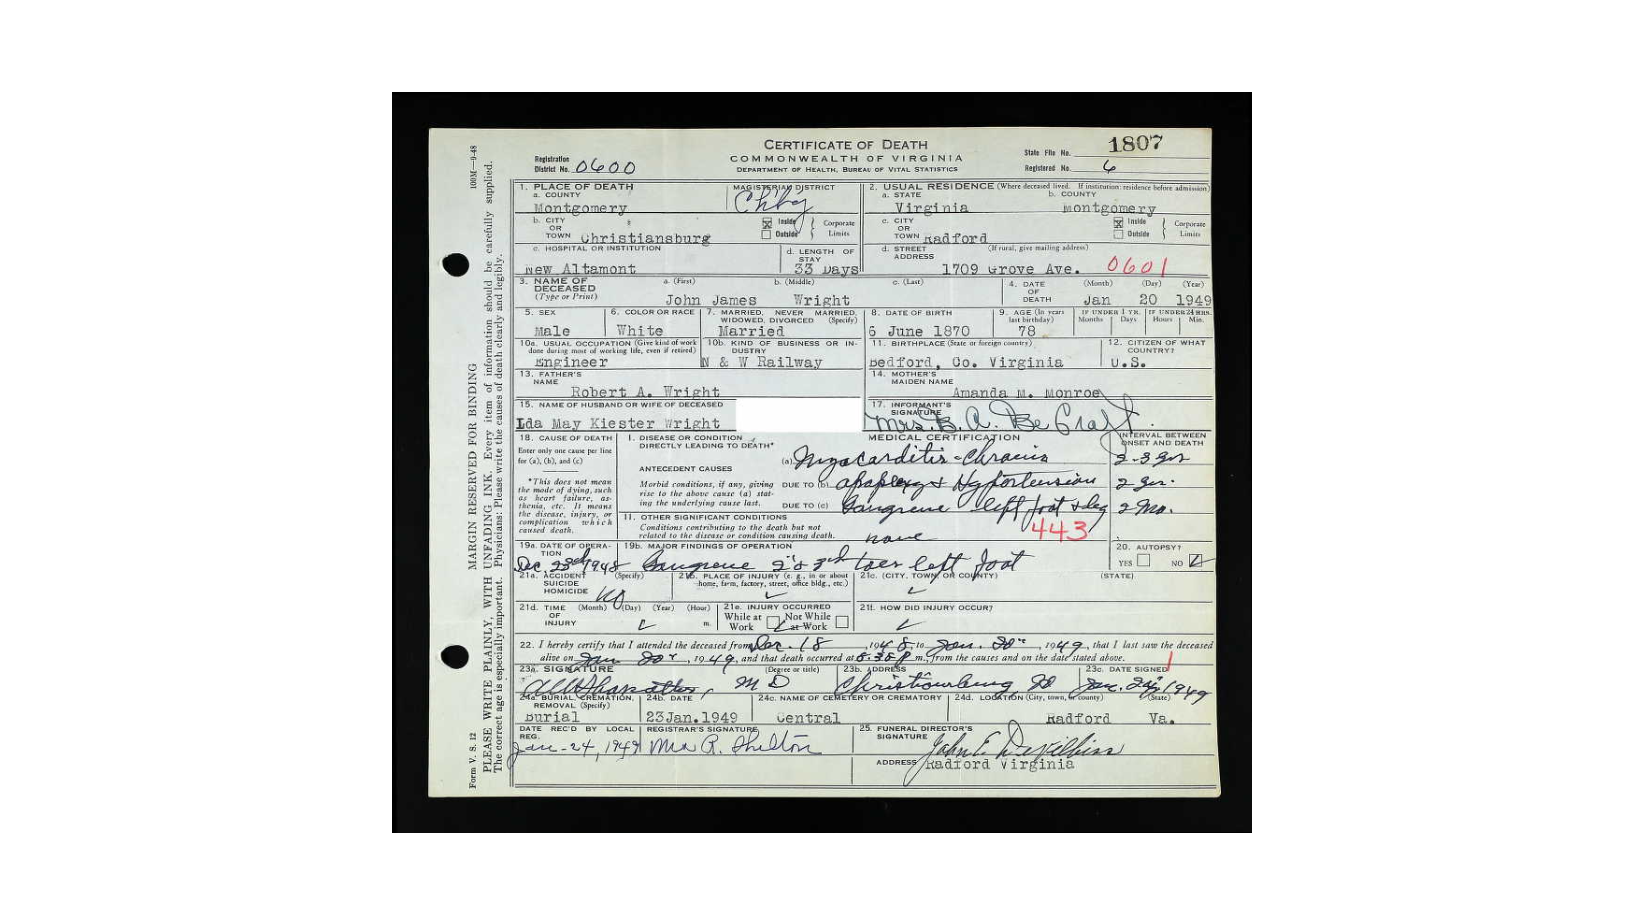 100M—9-48
MARGIN RESERVED FOR BINDING
PLEASE WRITE PLAINLY, WITH UNFADING INK. Every item of information should be carefully supplied.
The correct age is especially important. Physicians: Please write the causes of death clearly and legibly.
Form V. S. 12
CERTIFICATE OF DEATH
COMMONWEALTH OF VIRGINIA
DEPARTMENT OF HEALTH, BUREAU OF VITAL STATISTICS
Registration District No. 0600
State File No. 1807
Registered No. 6
1. PLACE OF DEATH
a. COUNTY
Montgomery
MAGISTERIAL DISTRICT
Chbg
2. USUAL RESIDENCE (Where deceased lived. If institution: residence before admission)
a. STATE
Virginia
b. COUNTY
Montgomery
b. CITY OR TOWN Christiansburg
Inside Outside Corporate Limits
c. CITY OR TOWN Radford
Inside Outside Corporate Limits
c. HOSPITAL OR INSTITUTION
New Altamont
d. LENGTH OF STAY
33 Days
d. STREET ADDRESS (If rural, give mailing address)
1709 Grove Ave. 0601
3. NAME OF DECEASED (Type or Print)
a. (First) b. (Middle) c. (Last)
John James Wright
4. DATE OF DEATH (Month) (Day) (Year)
Jan 20 1949
5. SEX
Male
6. COLOR OR RACE
White
7. MARRIED, NEVER MARRIED, WIDOWED, DIVORCED (Specify)
Married
8. DATE OF BIRTH
6 June 1870
9. AGE (In years last birthday)
78
IF UNDER 1 YR. Months Days
IF UNDER 24 HRS. Hours Min.
10a. USUAL OCCUPATION (Give kind of work done during most of working life, even if retired)
Engineer
10b. KIND OF BUSINESS OR INDUSTRY
N & W Railway
11. BIRTHPLACE (State or foreign country)
Bedford, Co. Virginia
12. CITIZEN OF WHAT COUNTRY?
U.S.
13. FATHER'S NAME
Robert A. Wright
14. MOTHER'S MAIDEN NAME
Amanda M. Monroe
15. NAME OF HUSBAND OR WIFE OF DECEASED
Ida May Kiester Wright
17. INFORMANT'S SIGNATURE
Mrs. B. A. BeCraft.
MEDICAL CERTIFICATION
INTERVAL BETWEEN ONSET AND DEATH
18. CAUSE OF DEATH
Enter only one cause per line for (a), (b), and (c)
*This does not mean the mode of dying, such as heart failure, asthenia, etc. It means the disease, injury, or complication which caused death.
I. DISEASE OR CONDITION DIRECTLY LEADING TO DEATH*
(a) Myocarditis - Chronic 2-3 yrs
ANTECEDENT CAUSES
Morbid conditions, if any, giving rise to the above cause (a) stating the underlying cause last.
DUE TO (b) apoplexy & Hypertension 2 yrs.
DUE TO (c) Gangrene left foot & leg 2 Mo.
443
11. OTHER SIGNIFICANT CONDITIONS
Conditions contributing to the death but not related to the disease or condition causing death.
none
19a. DATE OF OPERATION
Dec. 23rd 1948
19b. MAJOR FINDINGS OF OPERATION
Gangrene 2 & 3th toes left foot
20. AUTOPSY?
YES NO
21a. ACCIDENT SUICIDE HOMICIDE (Specify)
No
21b. PLACE OF INJURY (e. g., in or about home, farm, factory, street, office bldg., etc.)
21c. (CITY, TOWN, OR COUNTY) (STATE)
21d. TIME OF INJURY (Month) (Day) (Year) (Hour) m.
21e. INJURY OCCURRED
While at Work Not While at Work
21f. HOW DID INJURY OCCUR?
22. I hereby certify that I attended the deceased from Dec. 18, 1948, to Jan. 20, 1949, that I last saw the deceased
alive on Jan 20, 1949, and that death occurred at 8:30 P m., from the causes and on the date stated above.
23a. SIGNATURE (Degree or title)
M D
23b. ADDRESS
Christiansburg Va
23c. DATE SIGNED
Jan. 24, 1949
24a. BURIAL, CREMATION, REMOVAL (Specify)
Burial
24b. DATE
23 Jan. 1949
24c. NAME OF CEMETERY OR CREMATORY
Central
24d. LOCATION (City, town, or county) (State)
Radford Va.
DATE REC'D BY LOCAL REG.
Jan-24, 1949
REGISTRAR'S SIGNATURE
Mrs R. Shelton
25. FUNERAL DIRECTOR'S SIGNATURE
John E. DeVilbiss
ADDRESS Radford Virginia